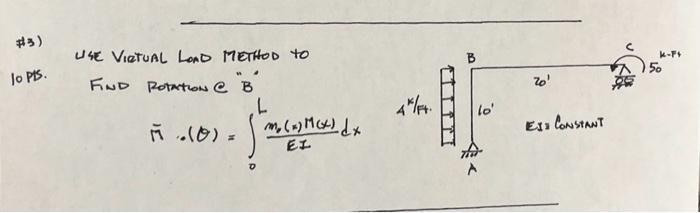 #3)
10 PTS.
USE VIRTUAL LOAD METHOD TO
FIND ROTATION @ "B"
M̄ .(θ) = ∫₀ᴸ m₀(x)M(x)/EI dx
B
C
K-Ft
50
20'
4 K/Ft.
10'
EI = CONSTANT
A